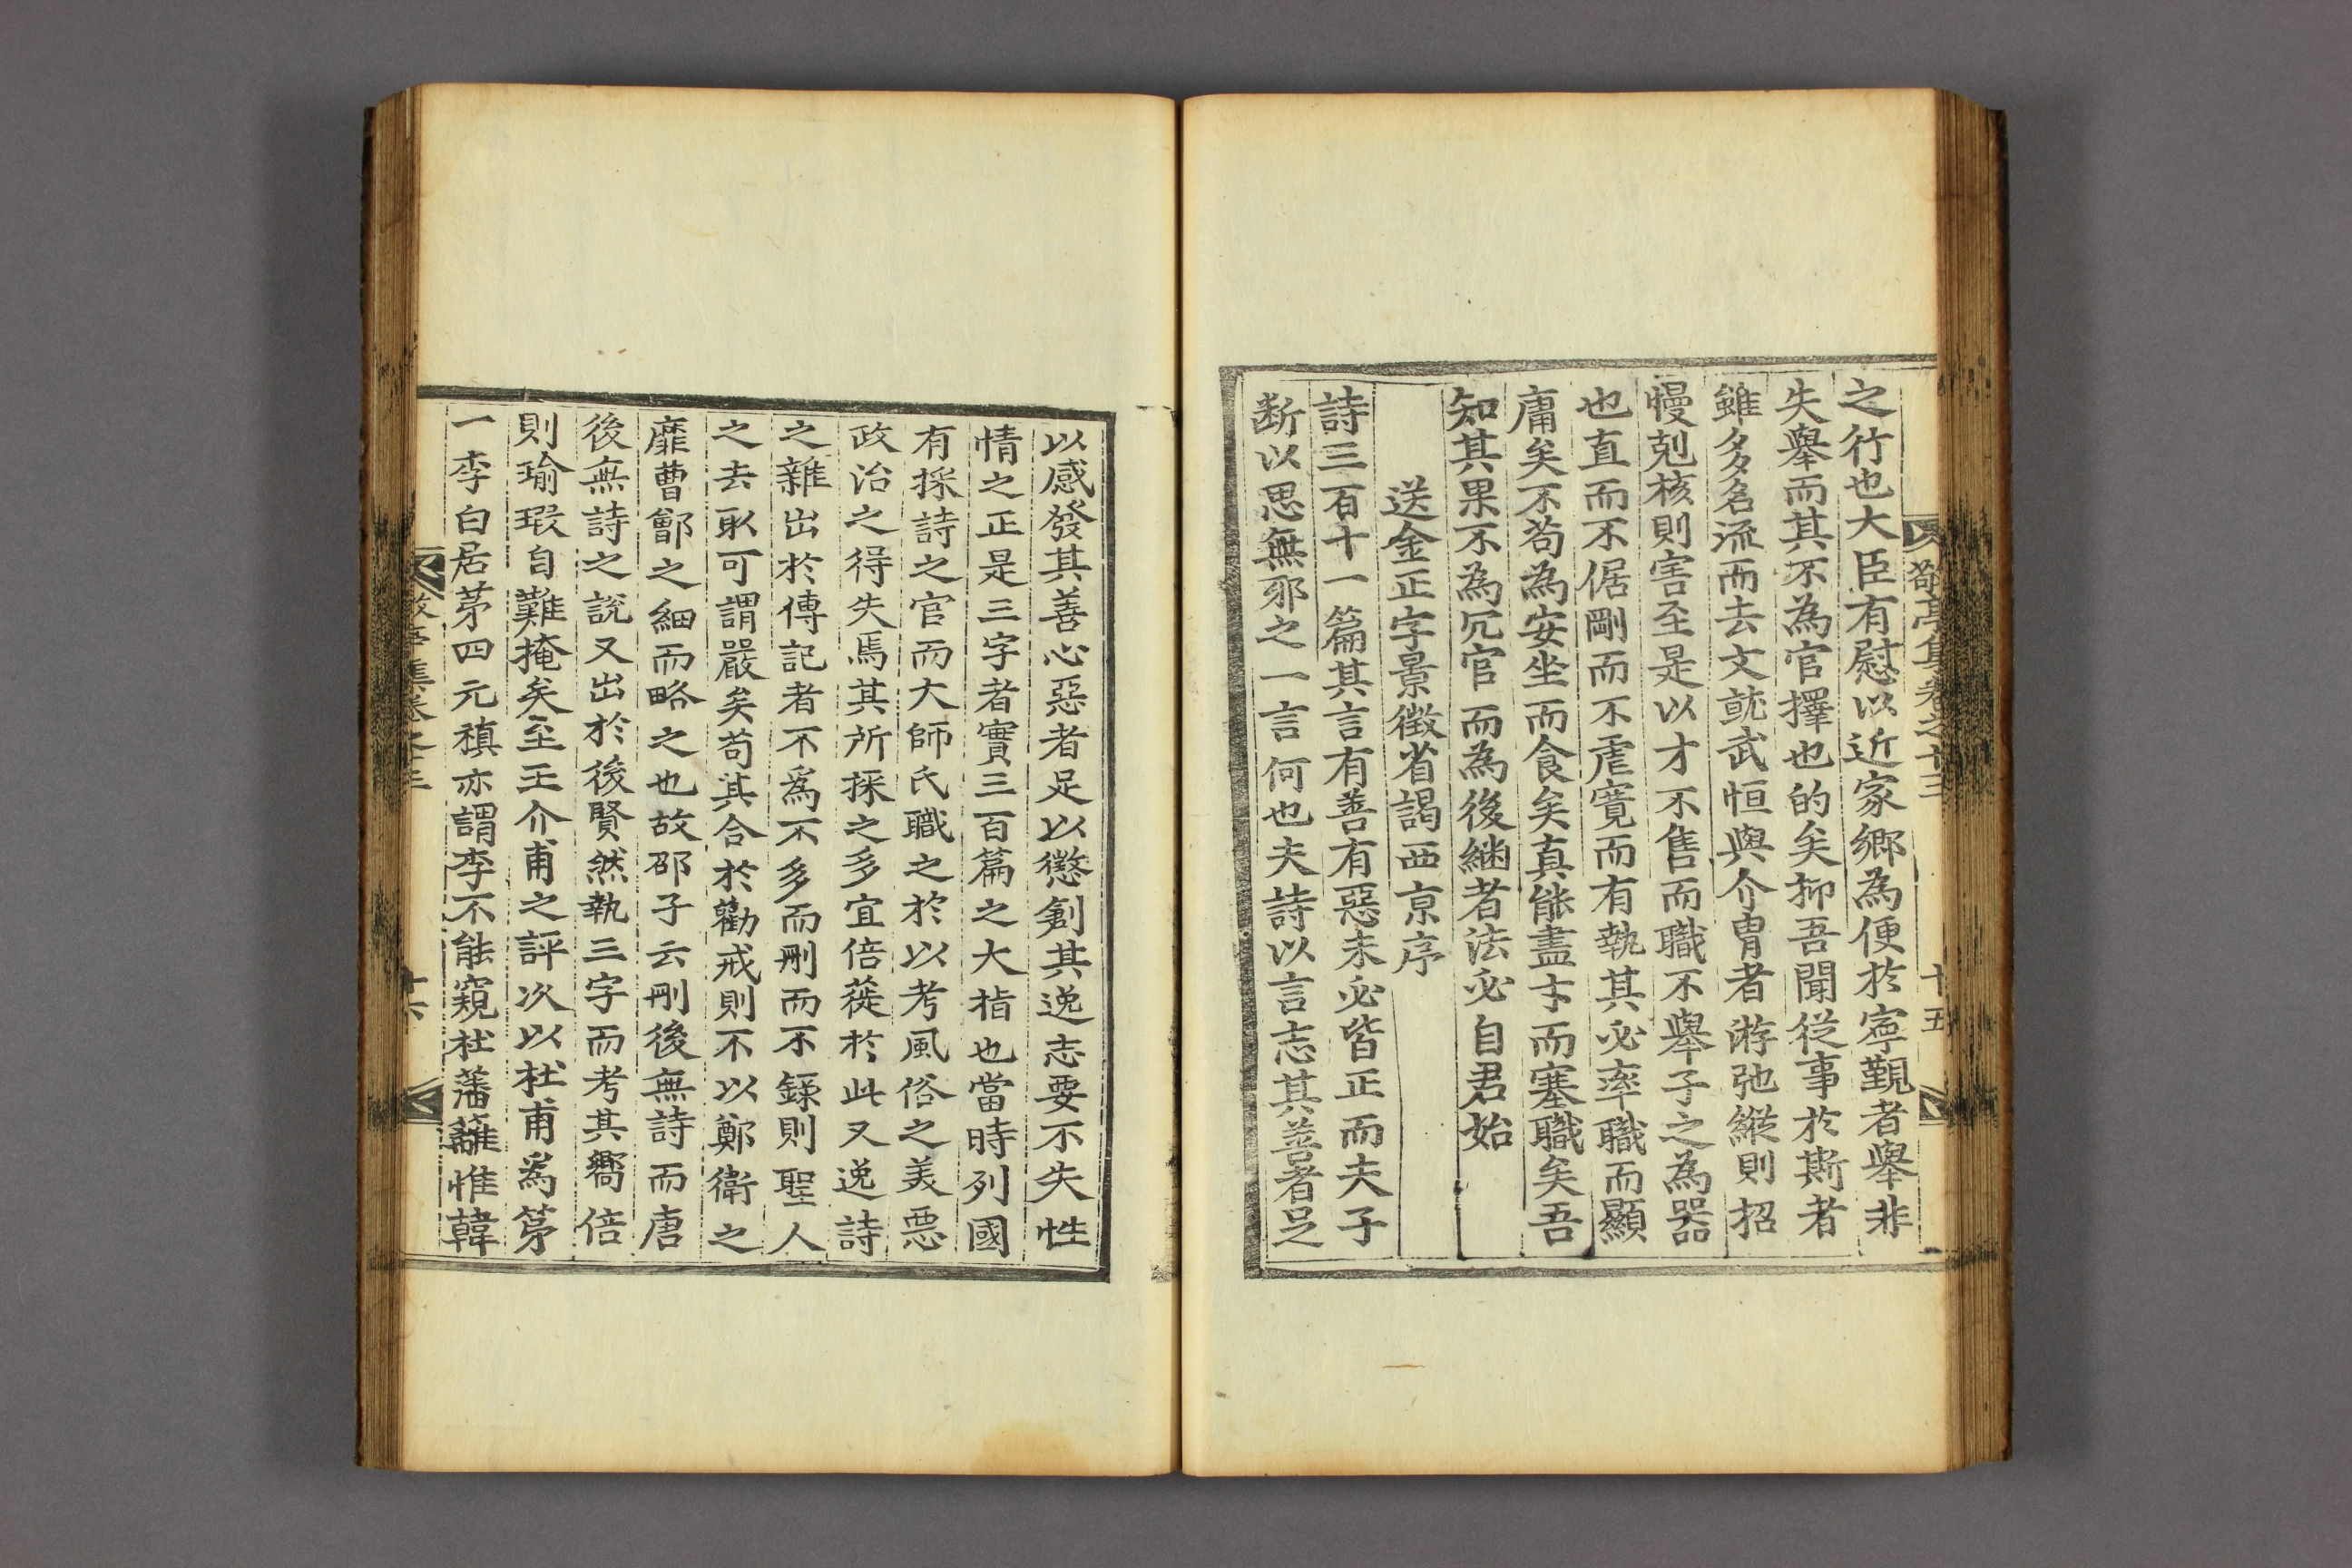 敬亭集卷之十三
十五
之行也大臣有慰以近家鄉為便於寧覲者舉非
失舉而其不為官擇也的矣抑吾聞從事於斯者
雖多名流而去文就武恒與介冑者游弛縱則招
慢剋核則害至是以才不售而職不舉子之為器
也直而不倨剛而不虐寛而有執其必率職而顯
庸矣不苟為安坐而食矣真能盡才而塞職矣吾
知其果不為冗官而為後継者法必自君始
送金正字景徵省謁西京序
詩三百十一篇其言有善有惡未必皆正而夫子
断以思無邪之一言何也夫詩以言志其善者足
以感發其善心惡者足以懲創其逸志要不失性
情之正是三字者實三百篇之大指也當時列國
有採詩之官而大師氏職之於以考風俗之美惡
政治之得失焉其所採之多宜倍蓰於此又逸詩
之雜出於傳記者不爲不多而刪而不錄則聖人
之去取可謂嚴矣苟其合於勸戒則不以鄭衛之
靡曹鄶之細而略之也故邵子云刪後無詩而唐
後無詩之說又出於後賢然執三字而考其嚮倍
則瑜瑕自難掩矣至王介甫之評次以杜甫爲第
一李白居第四元稹亦謂李不能窺杜藩籬惟韓
敬亭集卷之十三
十六